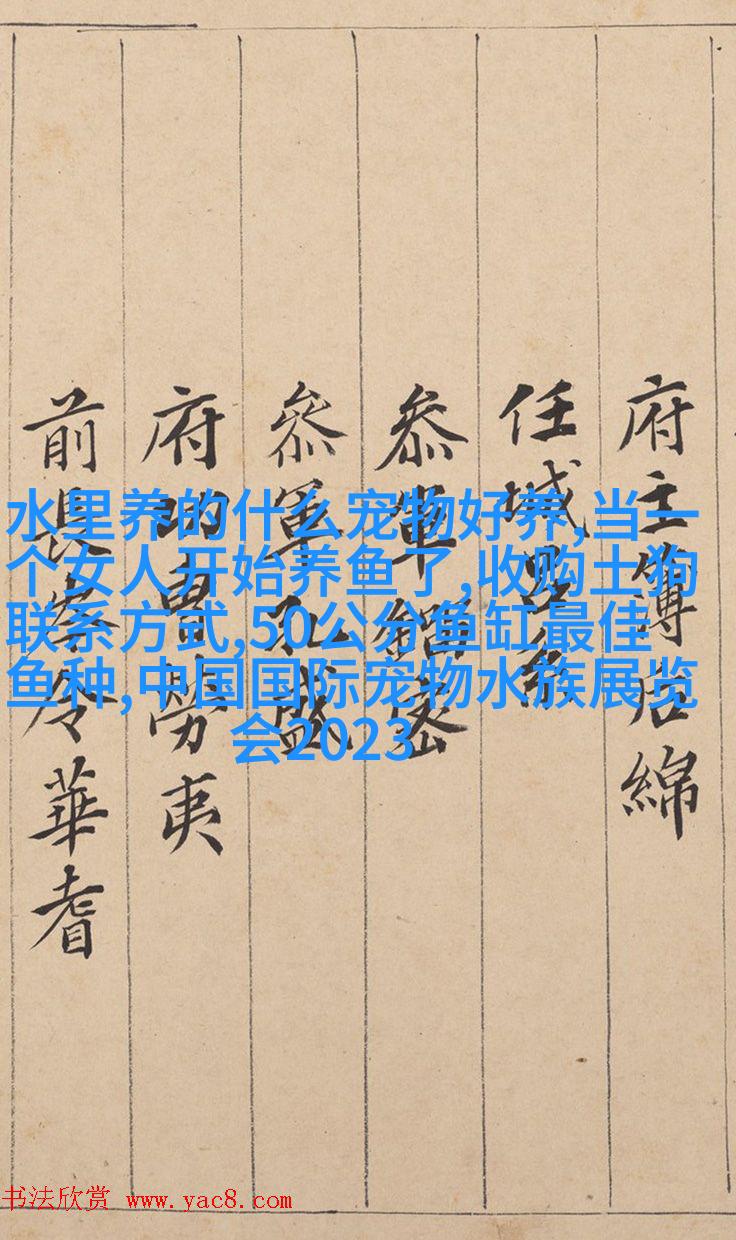 水里养的什么宠物好养,当一
个女人开始养鱼了,收购土狗
联系方式,50公分鱼缸最佳
鱼种,中国国际宠物水族展览
会2023
府主簿后綿
任城呂系
叅軍鎦密
叅軍孔盛
府功曹勞夷
前長岑令華耆
书法欣赏 www.yac8.com